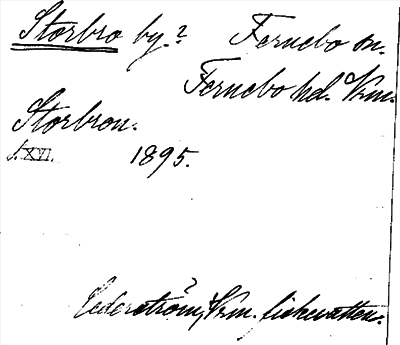 Storbro by? Fernebo sn.
Fernebo hd. Vrm.
Storbron.
s. XVI. 1895.
Cederström, Vrm. fiskevatten.